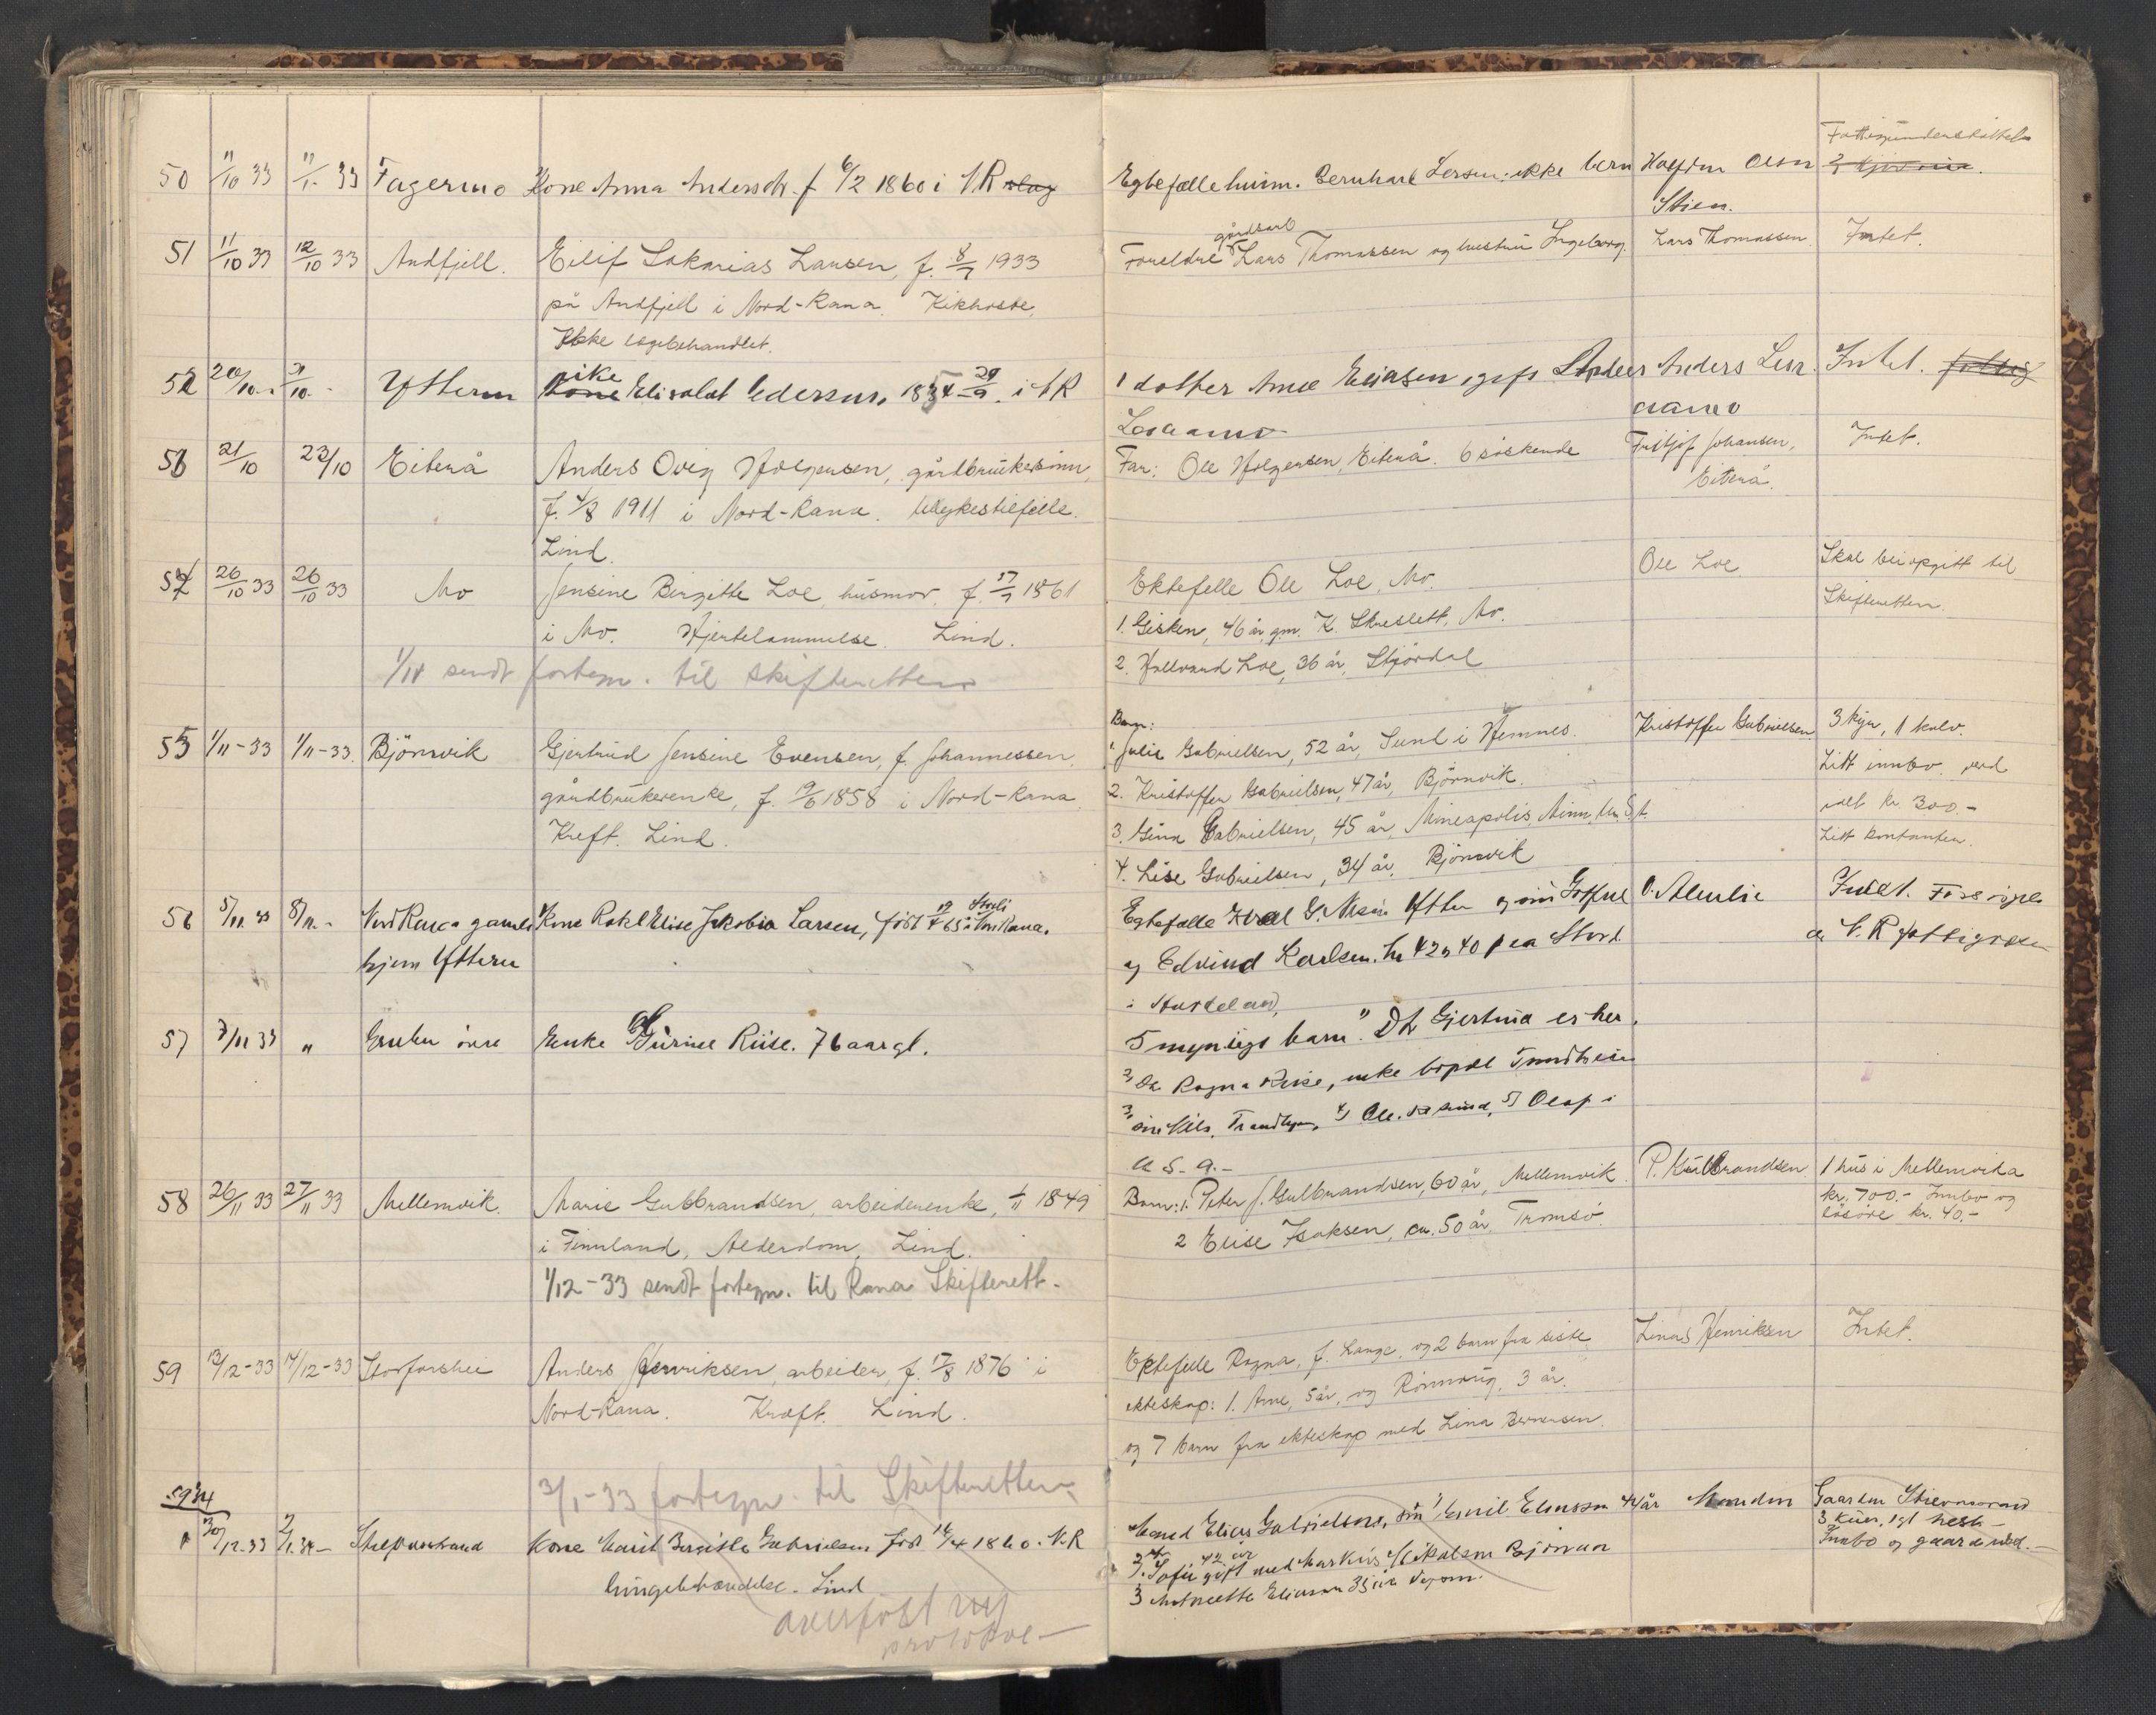 50 11/10 33 11/1. 33 Fagermo Kone Anna Andersdtr. f 6/2 1860 i N R
Egtefælle huism. Bernhard Larsen. ikke barn
Stien.
Fattigunderstøttels
51 11/10 33 12/10 33 Andfjell. Eilif Sakarias Larsen, f. 8/7 1933
på Andfjell i Nord-Rana. Kikhoste.
Ikke legebehandlet.
gårdsarb
Foreldre Lars Thomassen og hustru Ingeborg.
Lars Thomassen Intet.
52 20/10 - 21/10 - Ytteren pike Elisabet Pedersen, 1854 29/9. i N R
1 datter Anne Eliasen, gift Anders
Anders
Intet.
53 21/10 22/10 Eiterå Anders Ovig Holgersen, gårdbrukersønn,
f. 4/8 1911 i Nord-Rana. Ulykkestilfelle.
Lind.
Far: Ole Holgersen, Eiterå. 6 søskende
Fritjof Johansen,
Eiterå.
Intet.
54 26/10 33 26/10 33 Mo Jensine Birgitte Loe, husmor, f. 17/7 1861
i Mo. Hjertelammelse. Lind.
1/11 sendt fortegn. til skifteretten
Ektefelle Ole Loe, Mo.
1. Gisken, 46 år, gm. K. Skreslett, Mo.
2. Hallvard Loe, 36 år, Stjørdal
Ole Loe
Skal bli opgitt til
Skifteretten.
55 1/11-33 1/11-33. Bjørnvik Gjertrud Jensine Evensen, f. Johannessen,
gårdbrukerenke, f. 19/6 1858 i Nord-Rana.
Kreft. Lind.
Barn:
1. Julie Gabrielsen, 52 år, Sund i Hemnes.
2. Kristoffer Gabrielsen, 47 år, Bjørnvik.
3. Gina Gabrielsen, 45 år, Mineapolis, Minn, Un. St.
4. Lise Gabrielsen, 34 år, Bjørnvik
Kristoffer Gabrielsen
3 kyr, 1 kalv.
Litt innbo. verd
ialt kr. 300.-
Litt kontanter.
56 5/11. 33 8/11. - Nord Rana gamle Kone Rakel Elise Jakobia Larsen, født 12/4 65 i Nord Rana.
hjem Ytteren
og Edvind Karlsen. hr 42 og 40 paa Stord
i Hordeland,
Intet.
57 7/11 33 " Gruben øvre Enke Gurine Riise. 76 aar gl.
5 myndige barn. 1) Dt Gjertine er her.
2) Dt Ragna Riise, enke bopæl Trondheim
3) søn Nils. Trondhjem, 4) Ole. 5) Olaf i
U. S. A. -
58 26/11 33 27/11 33 Mellemvik. Marie Gulbrandsen, arbeiderenke, 1/11 1849
i Finnland, Alderdom, Lind.
1/12-33 sendt fortegn. til Rana Skifterett.
Barn: 1. Peter J. Gulbrandsen, 60 år, Mellemvik
2 Elise Isaksen, ca. 50 år, Tromsø.
P. Gulbrandsen
1 hus i Mellemvika
kr. 700.- Innbo og
løsøre kr. 40.-
59 13/12-33 14/12-33 Storforshei Anders Henriksen, arbeider, f. 17/8 1876 i
Nord-Rana. Kræft. Lind.
3/1-33 fortegn. til Skifteretten
Ektefelle Ragna, f. Lange, og 2 barn fra siste
ekteskap: 1. Arne, 5 år, og Rønnaug, 3 år.
og 7 barn fra ekteskap med Lina Bernersen.
Linus Henriksen
Intet.
1934
1 30/12-33 2/1. 34 - Kone Marit Birgitte Gabrielsen født 14/4 1860. N. R
Lind
overført ny
protokol -
Mand Elias Gabrielsen, søn 1) Emil Eliassen 44 år
2. 42 år
Sofie gift med Markus Mikalsen Bjørnan
3 Antonette Eliassen 35 år
Manden
Gaarden
3 kuer, 1 gl hest -
Innbo og gaardsred. -